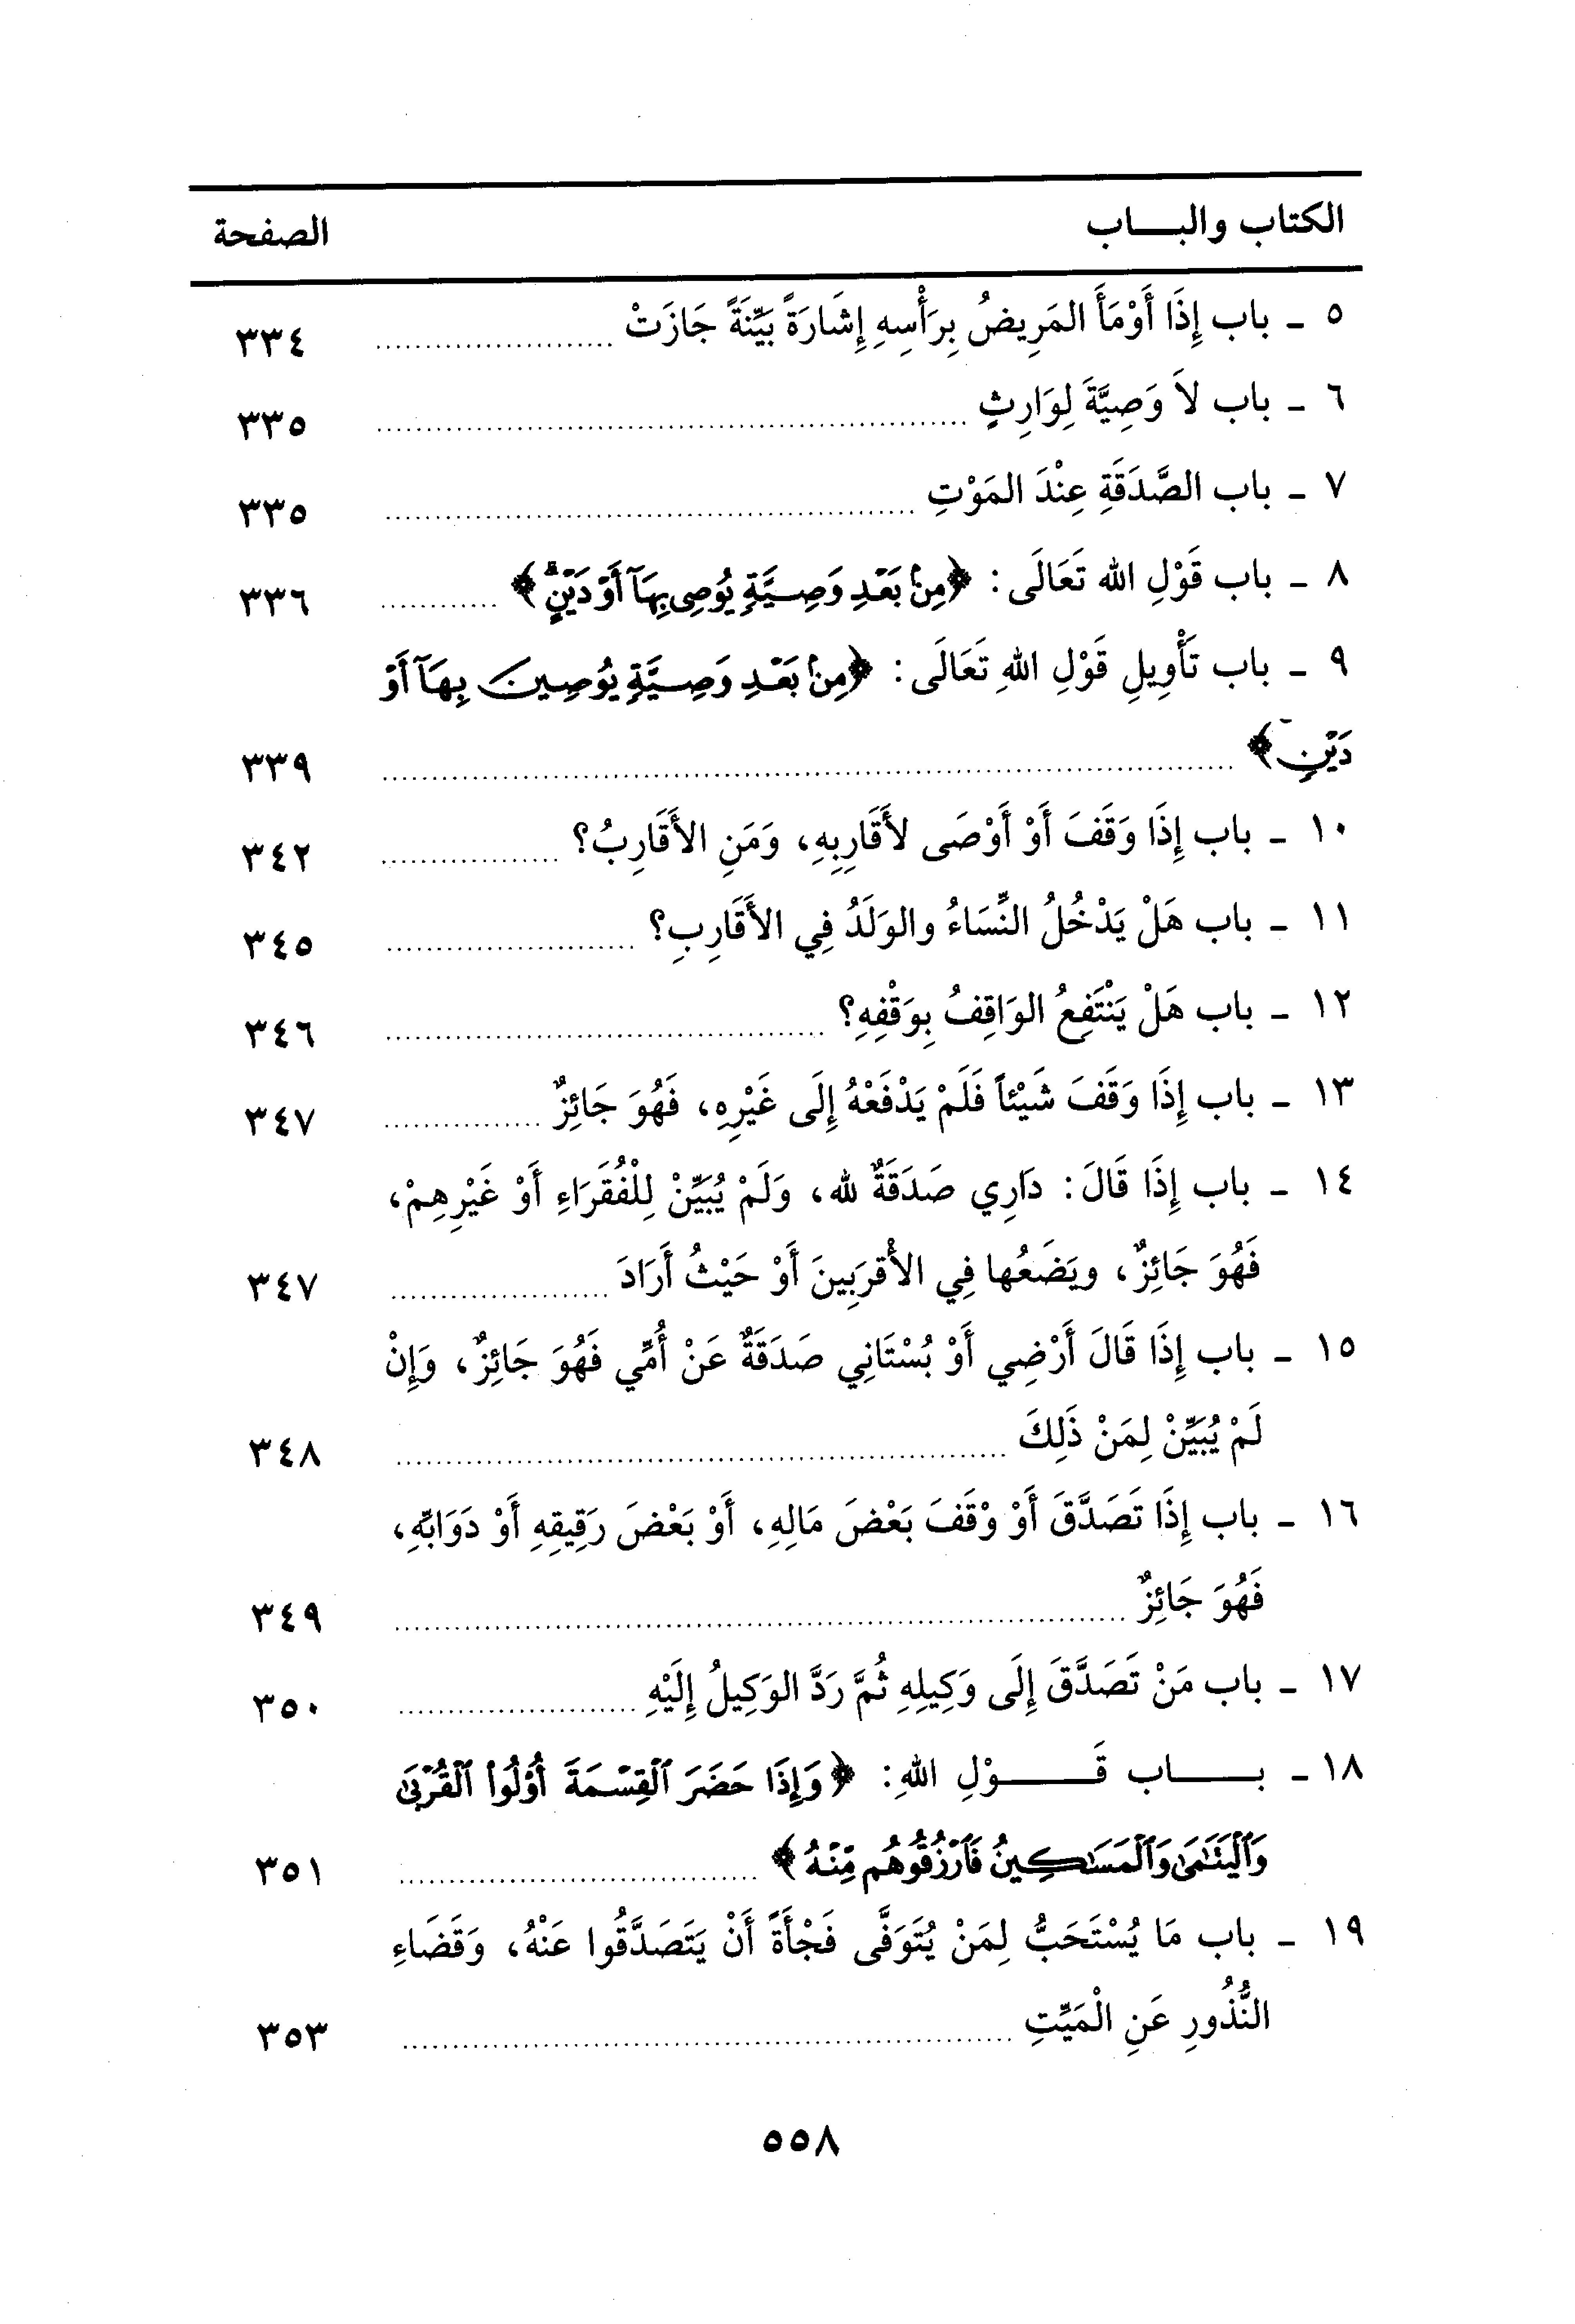 الكتاب والبـــاب الصفحة
٥ ـ باب إِذَا أَوْمَأَ المَرِيضُ بِرَأْسِهِ إِشَارَةً بَيِّنَةً جَازَتْ ........................ ٣٣٤
٦ ـ باب لاَ وَصِيَّةَ لِوَارِثٍ ........................ ٣٣٥
٧ ـ باب الصَّدَقَةِ عِنْدَ المَوْتِ ........................ ٣٣٥
٨ ـ باب قَوْلِ الله تَعَالَى: ﴿مِنۢ بَعْدِ وَصِيَّةٍ يُوصِى بِهَآ أَوْ دَيْنٍۗ﴾ ............ ٣٣٦
٩ ـ باب تَأْوِيلِ قَوْلِ اللهِ تَعَالَى: ﴿مِنۢ بَعْدِ وَصِيَّةٍ يُوصِينَ بِهَآ أَوْ
دَيْنٍ﴾ ........................ ٣٣٩
١٠ ـ باب إِذَا وَقَفَ أَوْ أَوْصَى لأَقَارِبِهِ، وَمَنِ الأَقَارِبُ؟ .................. ٣٤٢
١١ ـ باب هَلْ يَدْخُلُ النِّسَاءُ والوَلَدُ فِي الأَقَارِبِ؟ ........................ ٣٤٥
١٢ ـ باب هَلْ يَنْتَفِعُ الوَاقِفُ بِوَقْفِهِ؟ ........................ ٣٤٦
١٣ ـ باب إِذَا وَقَفَ شَيْئاً فَلَمْ يَدْفَعْهُ إِلَى غَيْرِهِ، فَهُوَ جَائِزٌ ................ ٣٤٧
١٤ ـ باب إِذَا قَالَ: دَارِي صَدَقَةٌ لله، وَلَمْ يُبَيِّنْ لِلْفُقَرَاءِ أَوْ غَيْرِهِمْ،
فَهُوَ جَائِزٌ، ويَضَعُها فِي الأَقْرَبِينَ أَوْ حَيْثُ أَرَادَ ...................... ٣٤٧
١٥ ـ باب إِذَا قَالَ أَرْضِي أَوْ بُسْتَانِي صَدَقَةٌ عَنْ أُمِّي فَهُوَ جَائِزٌ، وَإِنْ
لَمْ يُبَيِّنْ لِمَنْ ذَلِكَ ........................ ٣٤٨
١٦ ـ باب إِذَا تَصَدَّقَ أَوْ وْقَفَ بَعْضَ مَالِهِ، أَوْ بَعْضَ رَقِيقِهِ أَوْ دَوَابِّهِ،
فَهُوَ جَائِزٌ ........................ ٣٤٩
١٧ ـ باب مَنْ تَصَدَّقَ إِلَى وَكِيلِهِ ثُمَّ رَدَّ الوَكِيلُ إِلَيْهِ ........................ ٣٥٠
١٨ ـ بـــــاب قَـــــوْلِ اللهِ: ﴿وَإِذَا حَضَرَ ٱلْقِسْمَةَ أُو۟لُوا۟ ٱلْقُرْبَىٰ
وَٱلْيَتَـٰمَىٰ وَٱلْمَسَـٰكِينُ فَٱرْزُقُوهُم مِّنْهُ﴾ ........................ ٣٥١
١٩ ـ باب مَا يُسْتَحَبُّ لِمَنْ يُتَوَفَّى فَجْأَةً أَنْ يَتَصَدَّقُوا عَنْهُ، وَقَضَاءِ
النُّذُورِ عَنِ الْمَيِّتِ ........................ ٣٥٣
٥٥٨